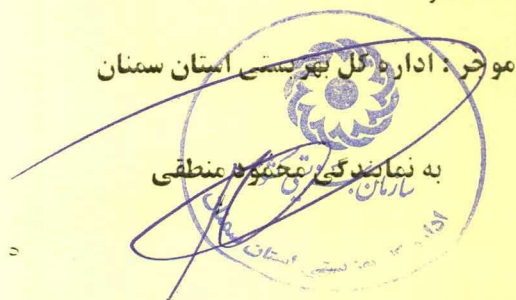 موجر : اداره کل بهزیستی استان سمنان
به نمایندگی محمود منطقی
سازمان بهزیستی کشور
اداره کل بهزیستی استان سمنان